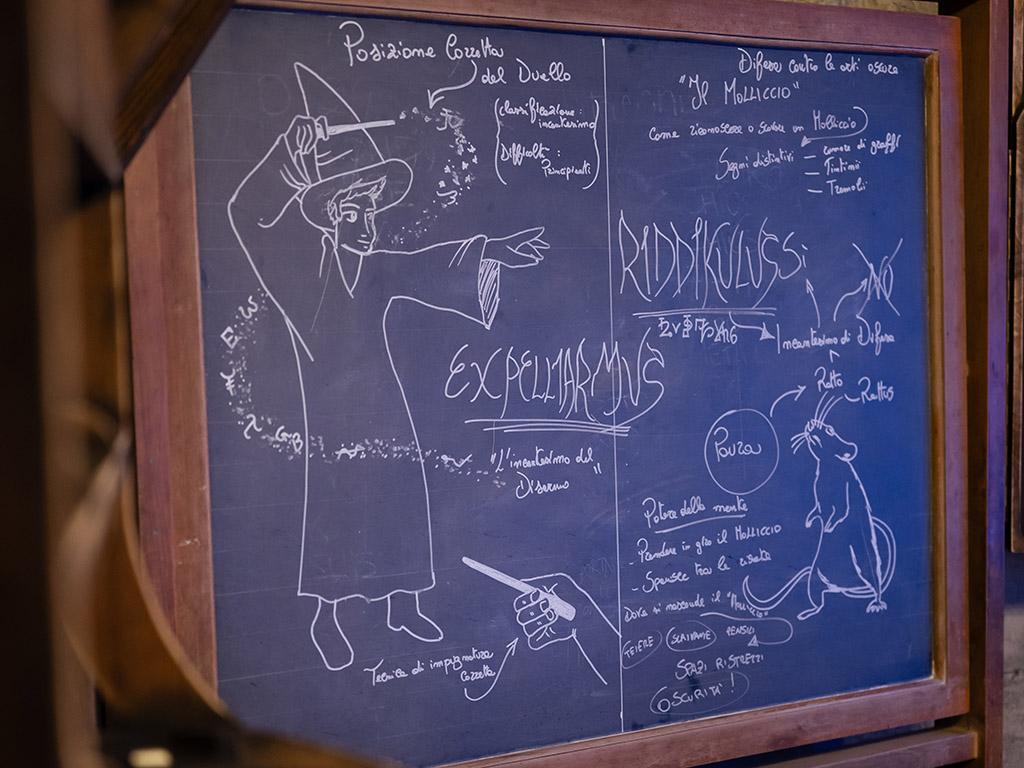 Posizione Corretta
del Duello
(classificazione:
incantesimo
Difficoltà:
Principianti)
EXPELLIARMUS
"L'incantesimo del
Disarmo"
Tecnica di impugnatura
corretta
Difesa contro le arti oscure
"Il MOLLICCIO"
Come riconoscere o scovare un Molliccio
Segni distintivi
— rumore di graffi
— Tintinnii
— Tremolii
RIDDIKULUSSi
NO
Incantesimo di Difesa
Ratto
Rattus
Paura
Potere della mente
- Prendere in giro il MOLLICCIO
- Sparisce tra le risate
Dove si nasconde il "Molliccio"
TEIERE
SCRIVANIE
PENSILI
SPAZI RISTRETTI
OSCURITA'!